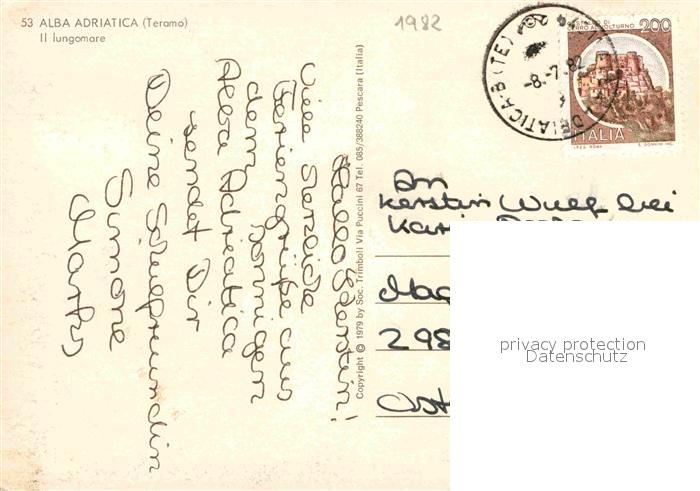 53 ALBA ADRIATICA (Teramo)
Il lungomare
1982
Hallo Kerstin!
Viele herzliche
Feriengrüße aus
dem sonnigen
Alba Adriatica
sendet Dir
Deine Schulfreundin
Simone
Copyright © 1979 by Soc. Trimboli Via Puccini 67 Tel. 085/388240 Pescara (Italia)
-8.-7.82
CASTELLO DI
CERRO AL VOLTURNO 200
ITALIA
An
Kerstin Wulf bei
298
privacy protection
Datenschutz